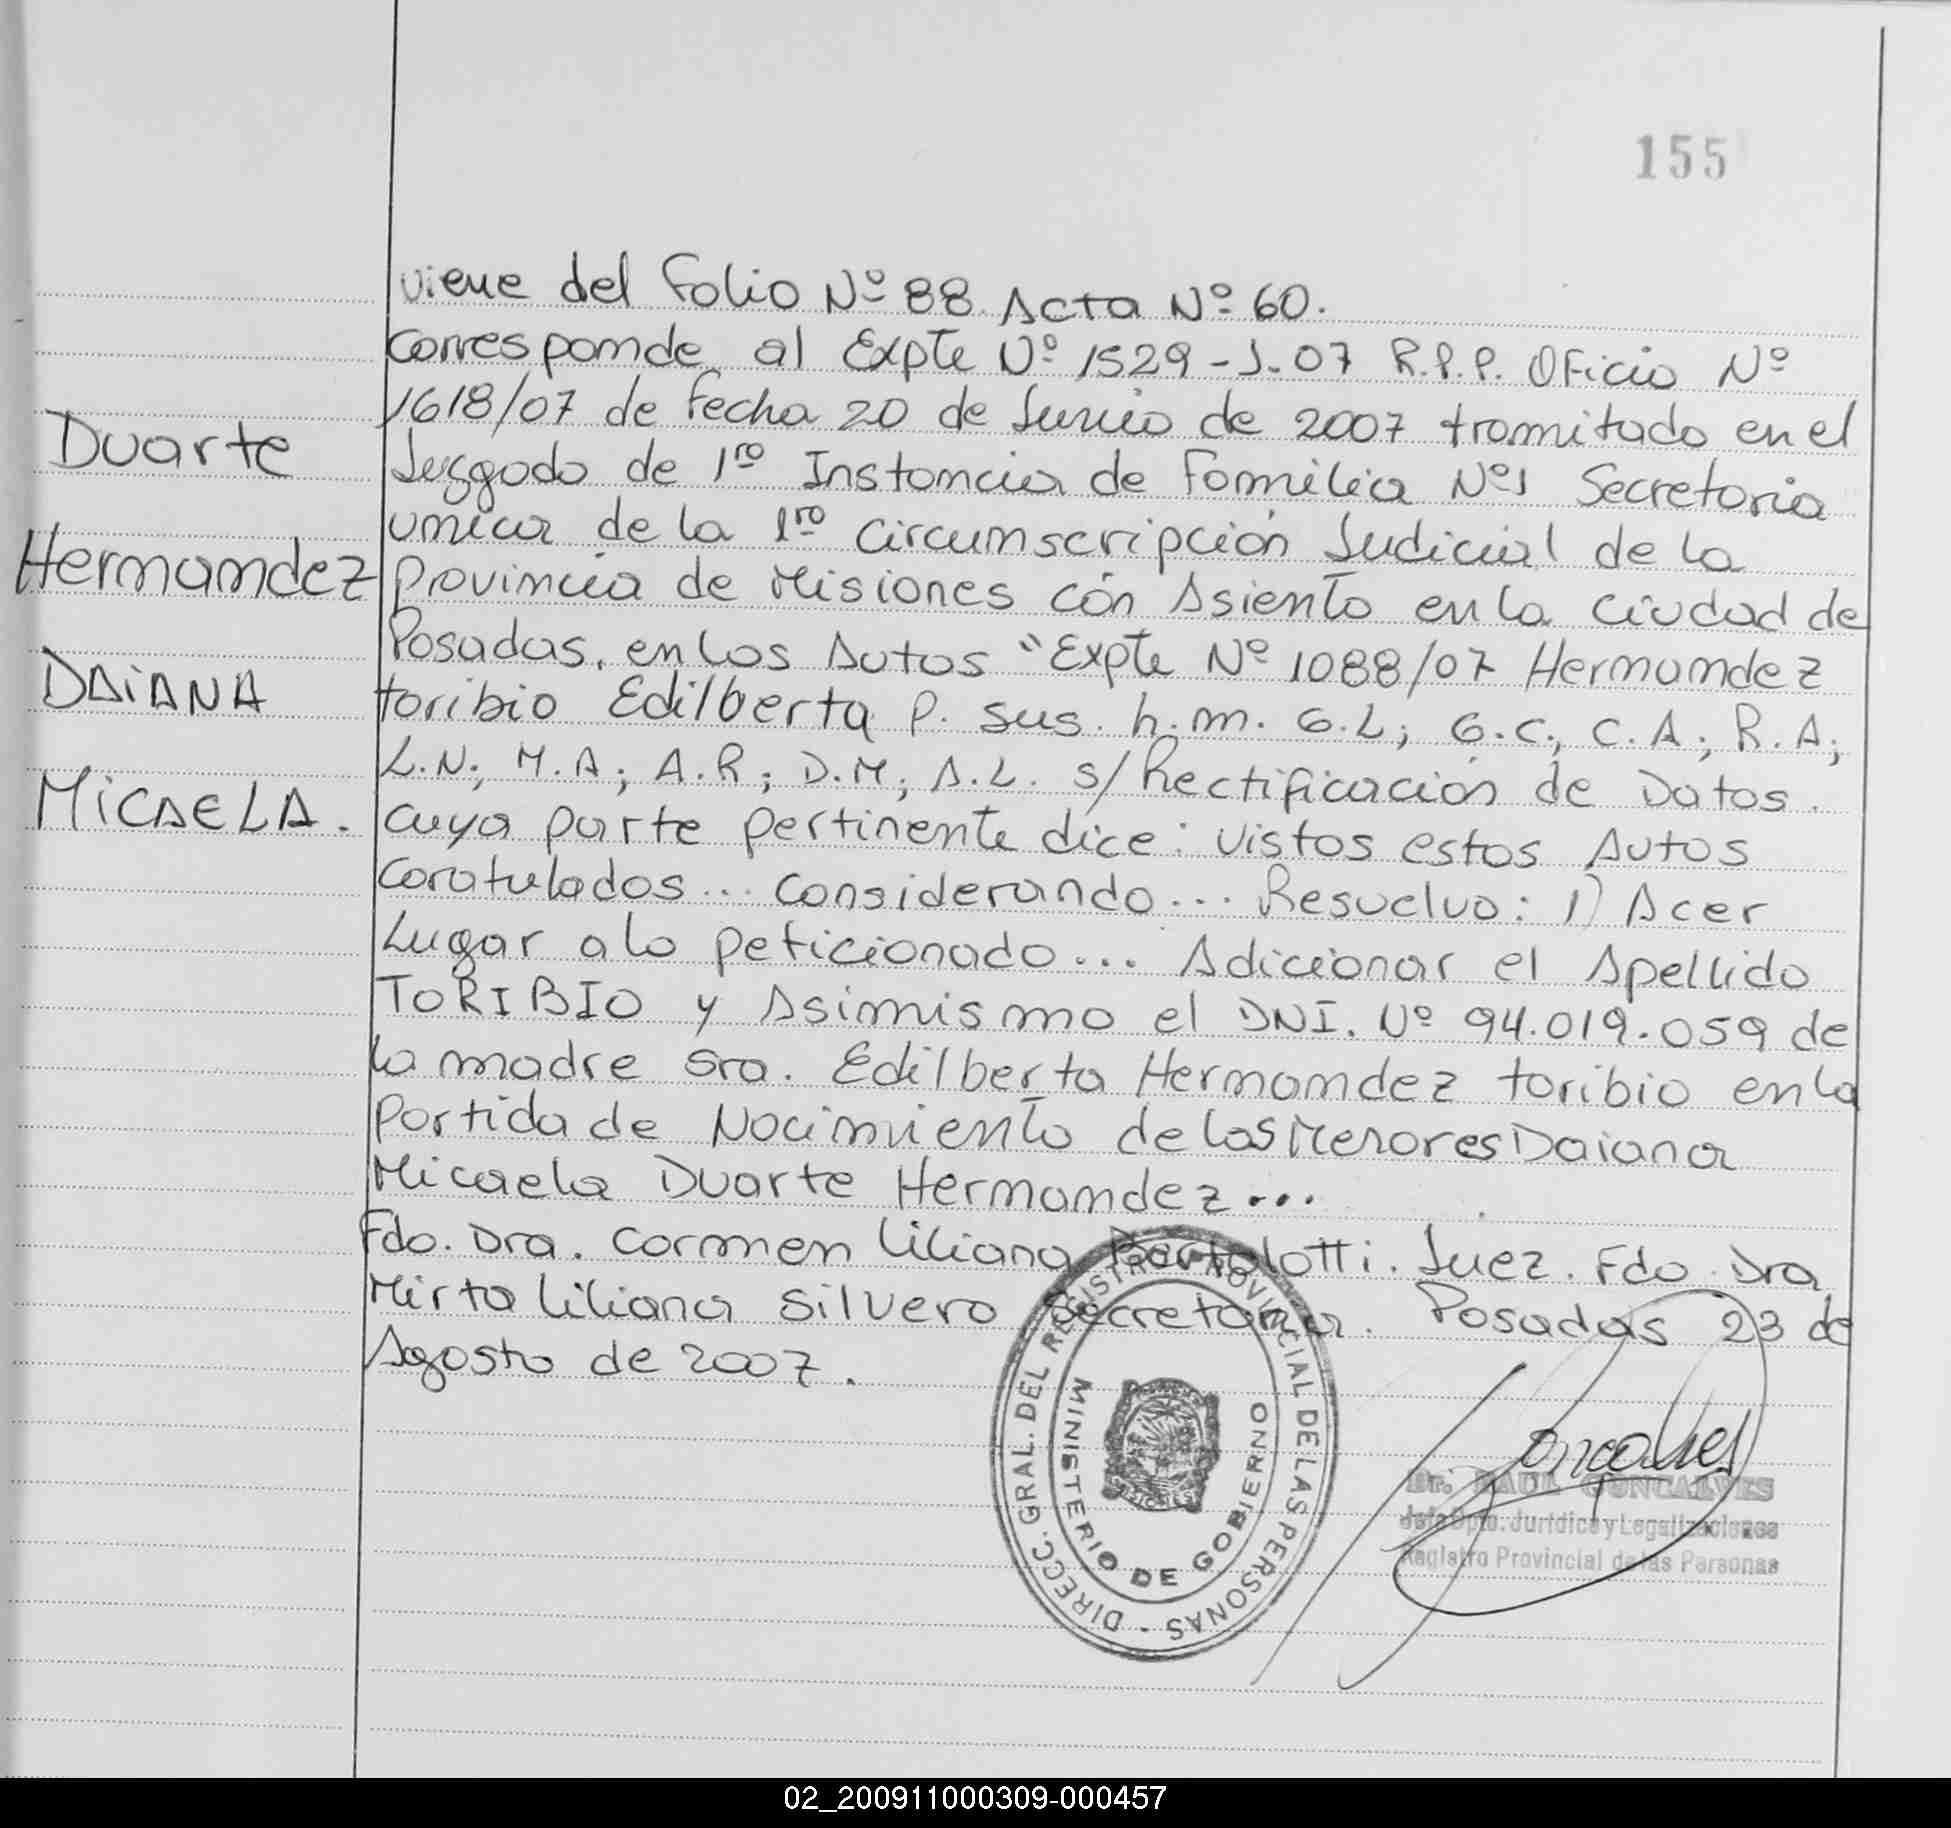 155
viene del Folio Nº 88. Acta Nº 60.
Corresponde al Expte Nº 1529-J-07 R.P.P. Oficio Nº
1618/07 de Fecha 20 de Junio de 2007 tramitado en el
Juzgado de 1ro Instancia de Familia Nº1 Secretaria
unica de la 1ro Circumscripción Judicial de la
Provincia de Misiones cón Asiento en la Ciudad de
Posadas. en los Autos "Expte Nº 1088/07 Hernandez
toribio Edilberta p. sus. h.m. G.L; G.C; C.A; R.A;
L.N; M.A; A.R; D.M; A.L. s/ Rectificación de Datos.
cuya parte pertinente dice: vistos estos Autos
caratulados... considerando... Resuelvo: 1) Acer
Lugar a lo peticionado... Adicionar el Apellido
TORIBIO y Asimismo el DNI. Nº 94.019.059 de
la madre Sra. Edilberta Hernandez toribio en la
Partida de Nacimiento de las Menores Daiana
Micaela Duarte Hernandez...
Fdo. Dra. Carmen Liliana Bertolotti. Juez. Fdo. Dra
Mirta Liliana Silvero Secretaria. Posadas 23 de
Agosto de 2007.
Duarte
Hernandez
DAiANA
MiCAELA.
DIRECC. GRAL. DEL REGISTRO PROVINCIAL DE LAS PERSONAS -
MINISTERIO DE GOBIERNO
MISIONES
Gonçalves
Dr. RAUL GONCALVES
Jefe Dpto. Jurídica y Legalizaciones
Registro Provincial de las Personas
02_200911000309-000457